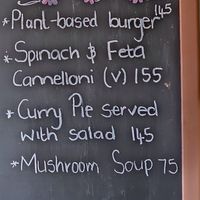 *Plant-based burger 145
*Spinach & Feta
Cannelloni (v) 155
*Curry Pie served
with salad 145
*Mushroom Soup 75